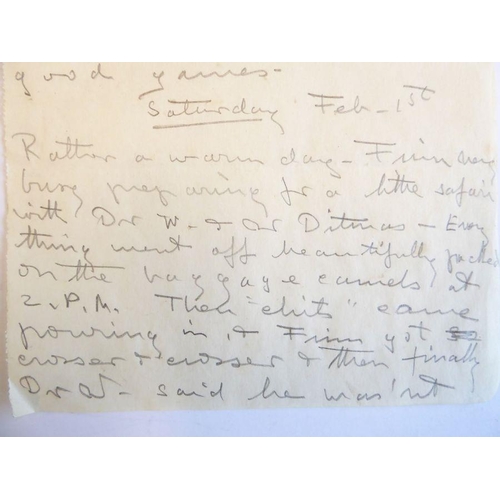 good games-
Saturday Feb-1st
Rather a warm day- Finn very
busy preparing for a little safari
with Dr W. & Dr Ditmas - Every
thing went off beautifully packed
on the baggage camels at
2.P.M. Then "chits" came
pouring in, & Finn got
crosser & crosser & then finally
Dr W- said he was'nt